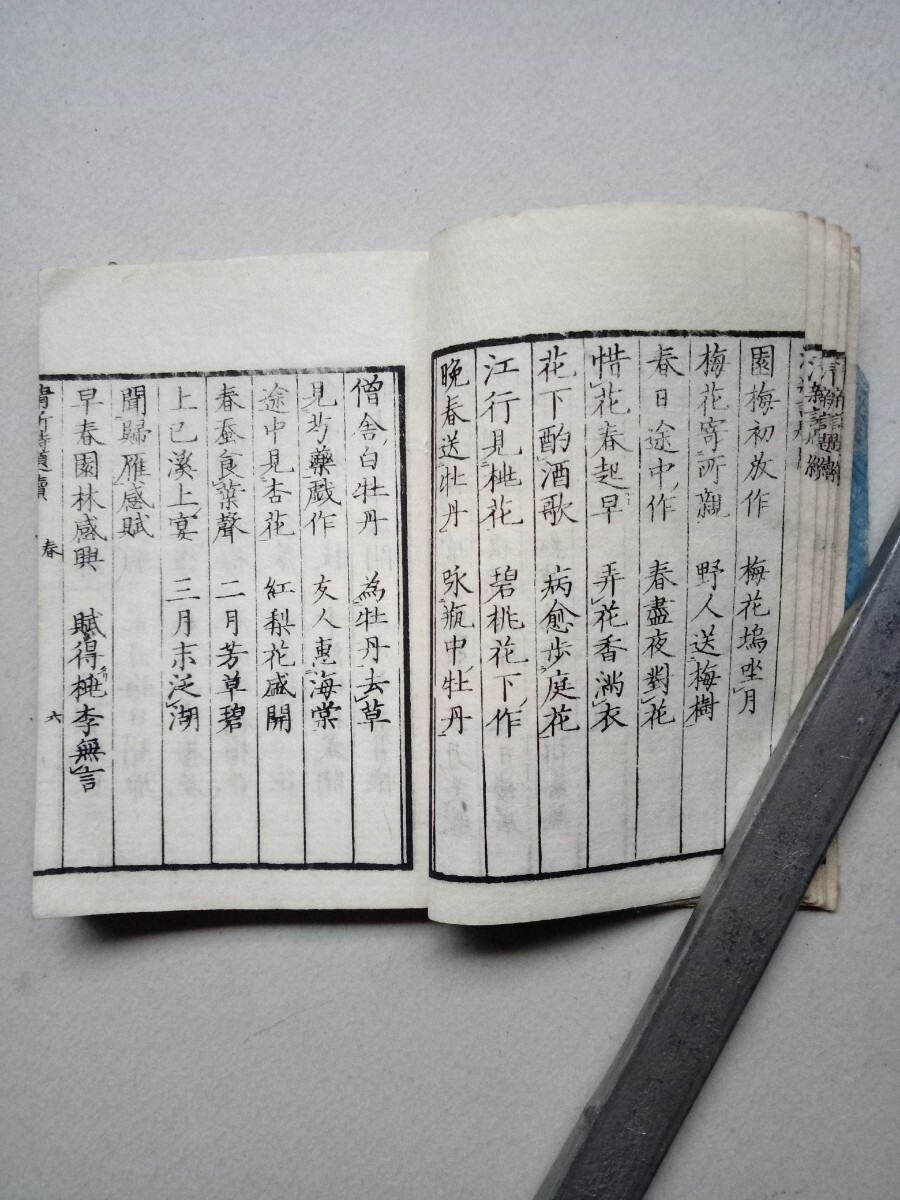 園梅初放作　梅花塢坐月
梅花寄所親　野人送梅樹
春日途中作　春盡夜對花
惜花春起早　弄花香滿衣
花下酌酒歌　病愈步庭花
江行見桃花　碧桃花下作
晚春送牡丹　咏瓶中牡丹
僧舍白牡丹　為牡丹去草
見芍藥戲作　友人惠海棠
途中見杏花　紅梨花盛開
春蚕食葉聲　二月芳草碧
上巳溪上宴　三月末泛湖
聞歸雁感賦
早春園林感興　賦得桃李無言
春　六